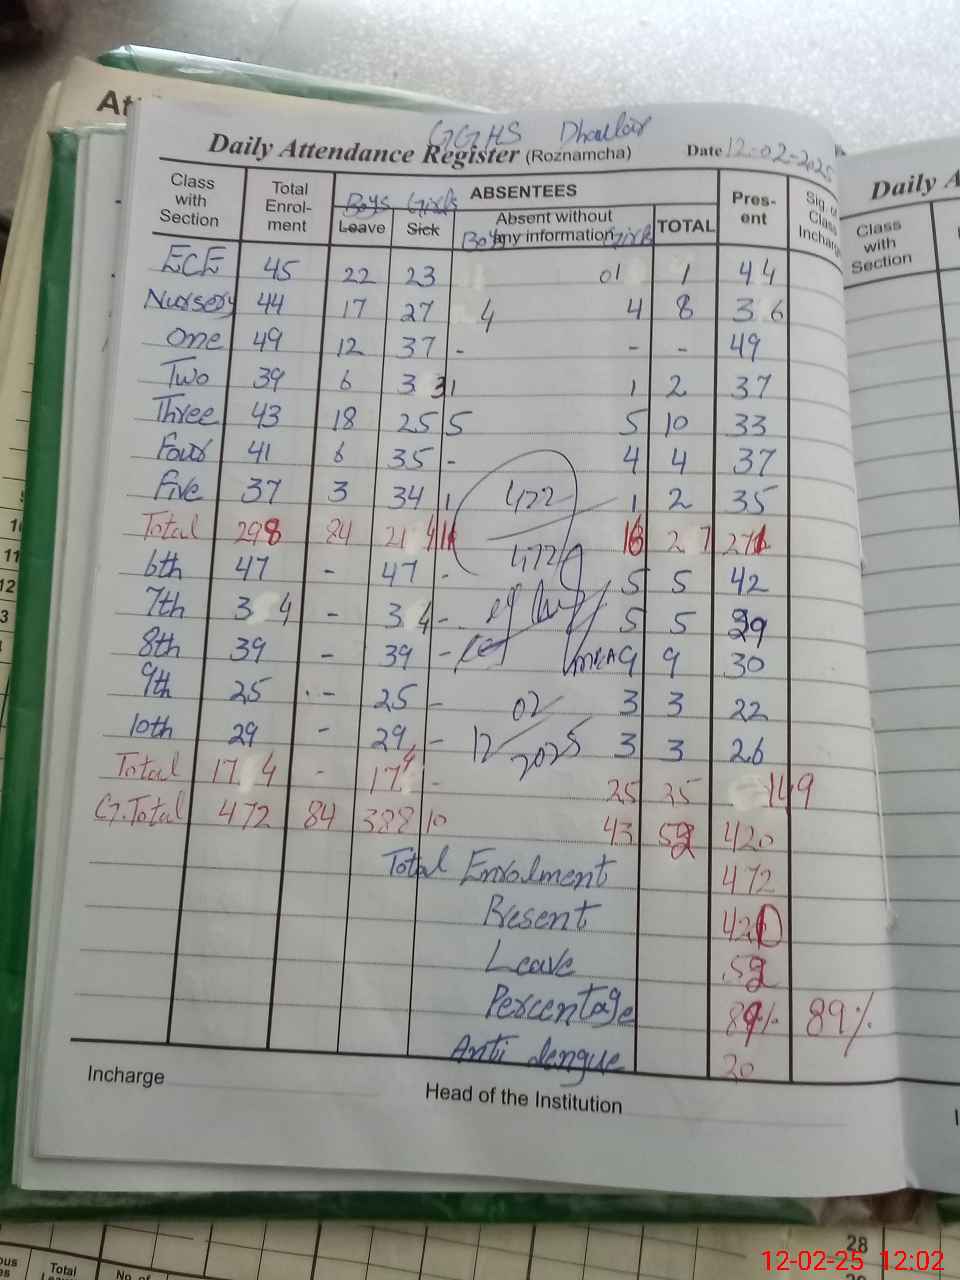 GGHS Dhallar
Daily Attendance Register (Roznamcha) Date 12-02-2025
Class with Section Total Enrol-ment Boys Girls ABSENTEES Pres-ent Sig. of Class Incharge
Leave Sick Boys Absent without any information Girls TOTAL
ECE 45 22 23 01 1 44
Nursery 44 17 27 4 4 8 36
One 49 12 37 - - - 49
Two 39 6 33 1 1 2 37
Three 43 18 25 5 5 10 33
Four 41 6 35 - 4 4 37
Five 37 3 34 1 1 2 35
422
Total 298 84 214 11 16 27 271
472
6th 47 - 47 - 5 5 42
7th 34 - 34 - 5 5 29
8th 39 - 39 - MEA 9 9 30
9th 25 - 25 - 3 3 22
02
10th 29 - 29 - 3 3 26
12 2025
Total 174 - 174 - 25 25 149
G.Total 472 84 388 10 43 52 420
Total Enrolment 472
Present 420
Leave 52
Percentage 89% 89%
Anti dengue 20
Incharge
Head of the Institution
Daily A
Class with Section
28
Total
No. of
12-02-25 12:02